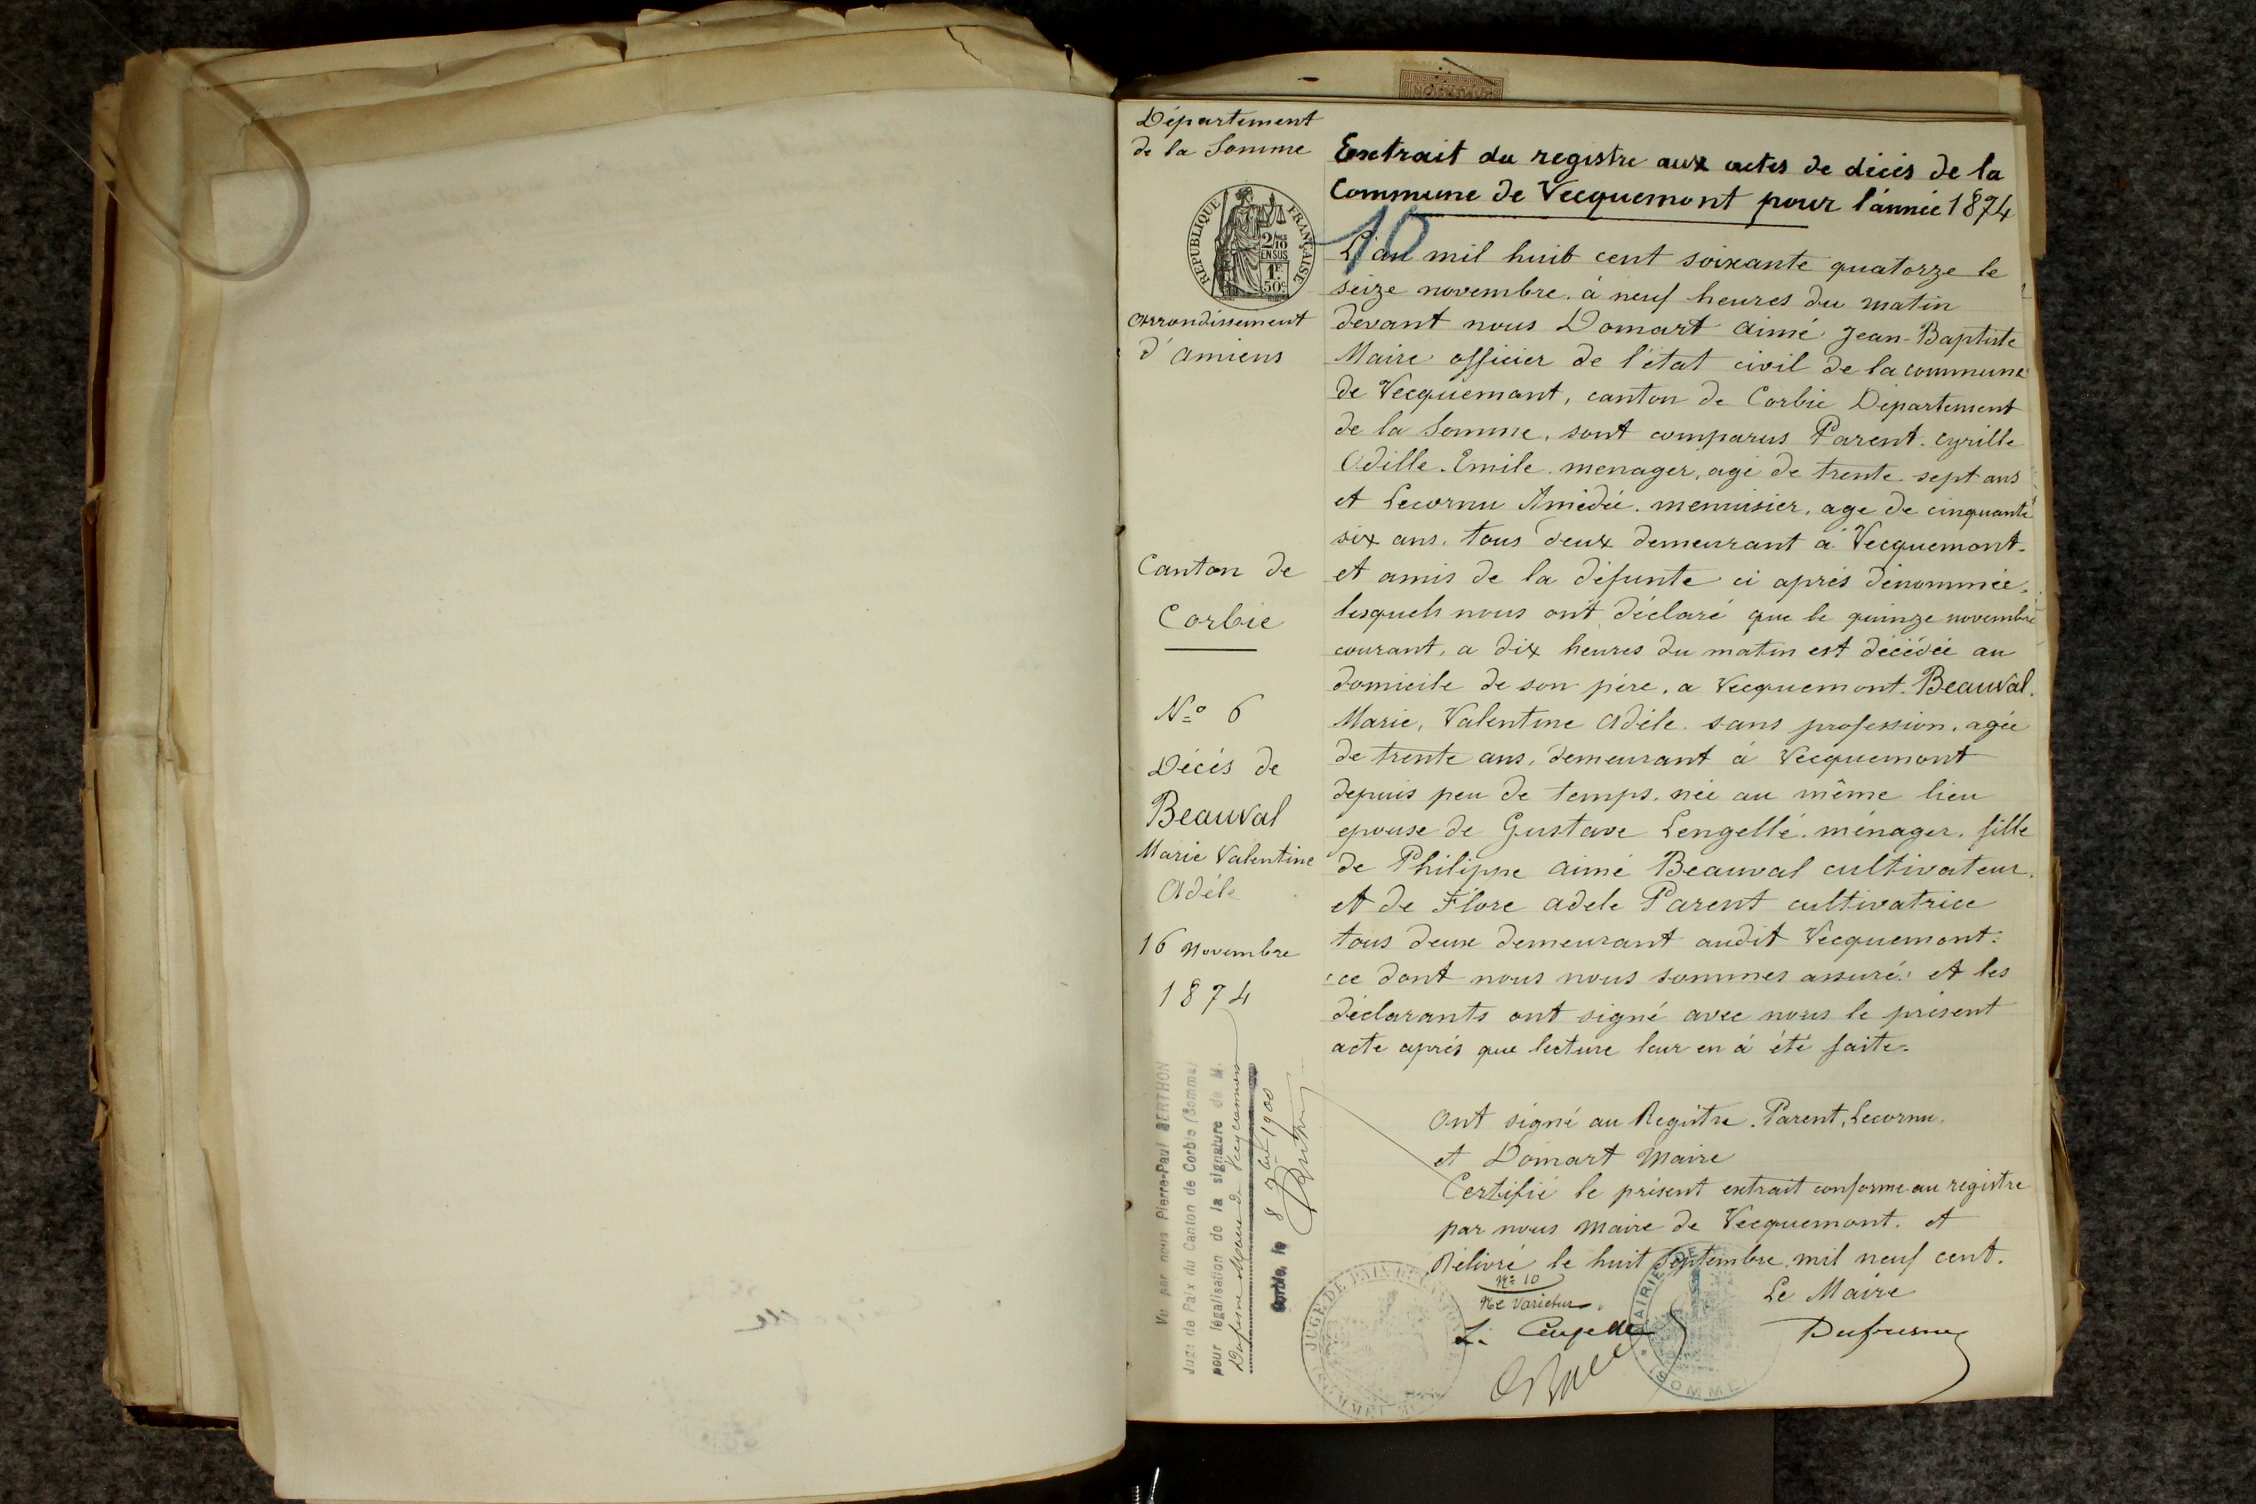 Département
de la Somme
REPUBLIQUE FRANÇAISE
2/10
EN SUS
1F
50c
Arrondissement
d'Amiens
Canton de
Corbie
No 6
Décès de
Beauval
Marie Valentine
Adèle
16 Novembre
1874
Vu par nous Pierre-Paul BERTHON
Juge de Paix du Canton de Corbie (Somme)
pour légalisation de la signature de M.
Dufresne Maire de Vecquemont
Corbie, le 8 7bre 1900
Berthon
Extrait du registre aux actes de décès de la
Commune de Vecquemont pour l'année 1874
10
L'an mil huit cent soixante quatorze le
seize novembre, à neuf heures du matin
devant nous Domart Aimé Jean-Baptiste
Maire officier de l'état civil de la commune
de Vecquemont, canton de Corbie Département
de la Somme, sont comparus Parent Cyrille
Odille Emile ménager, agé de trente sept ans
et Lecornu Amédée menuisier, age de cinquante
six ans, tous deux demeurant à Vecquemont
et amis de la défunte ci après dénommée,
lesquels nous ont déclaré que le quinze novembre
courant, a dix heures du matin est décédée au
domicile de son père, a Vecquemont Beauval
Marie, Valentine Adèle sans profession, agée
de trente ans, demeurant à Vecquemont
depuis peu de temps, née au même lieu
epouse de Gustave Lengellé, ménager, fille
de Philippe Aimé Beauval cultivateur,
et de Flore Adele Parent cultivatrice
tous deux demeurant audit Vecquemont:
ce dont nous nous sommes assuré; et les
déclarants ont signé avec nous le présent
acte après que lecture leur en à été faite.
Ont signé au Registre. Parent, Lecornu,
et Domart Maire
Certifié le présent extrait conforme au registre
par nous Maire de Vecquemont. et
Délivré le huit Septembre mil neuf cent.
No 10
Ne Varietur
Le Maire
Dufresne
JUGE DE PAIX
MAIRIE DE
(SOMME)